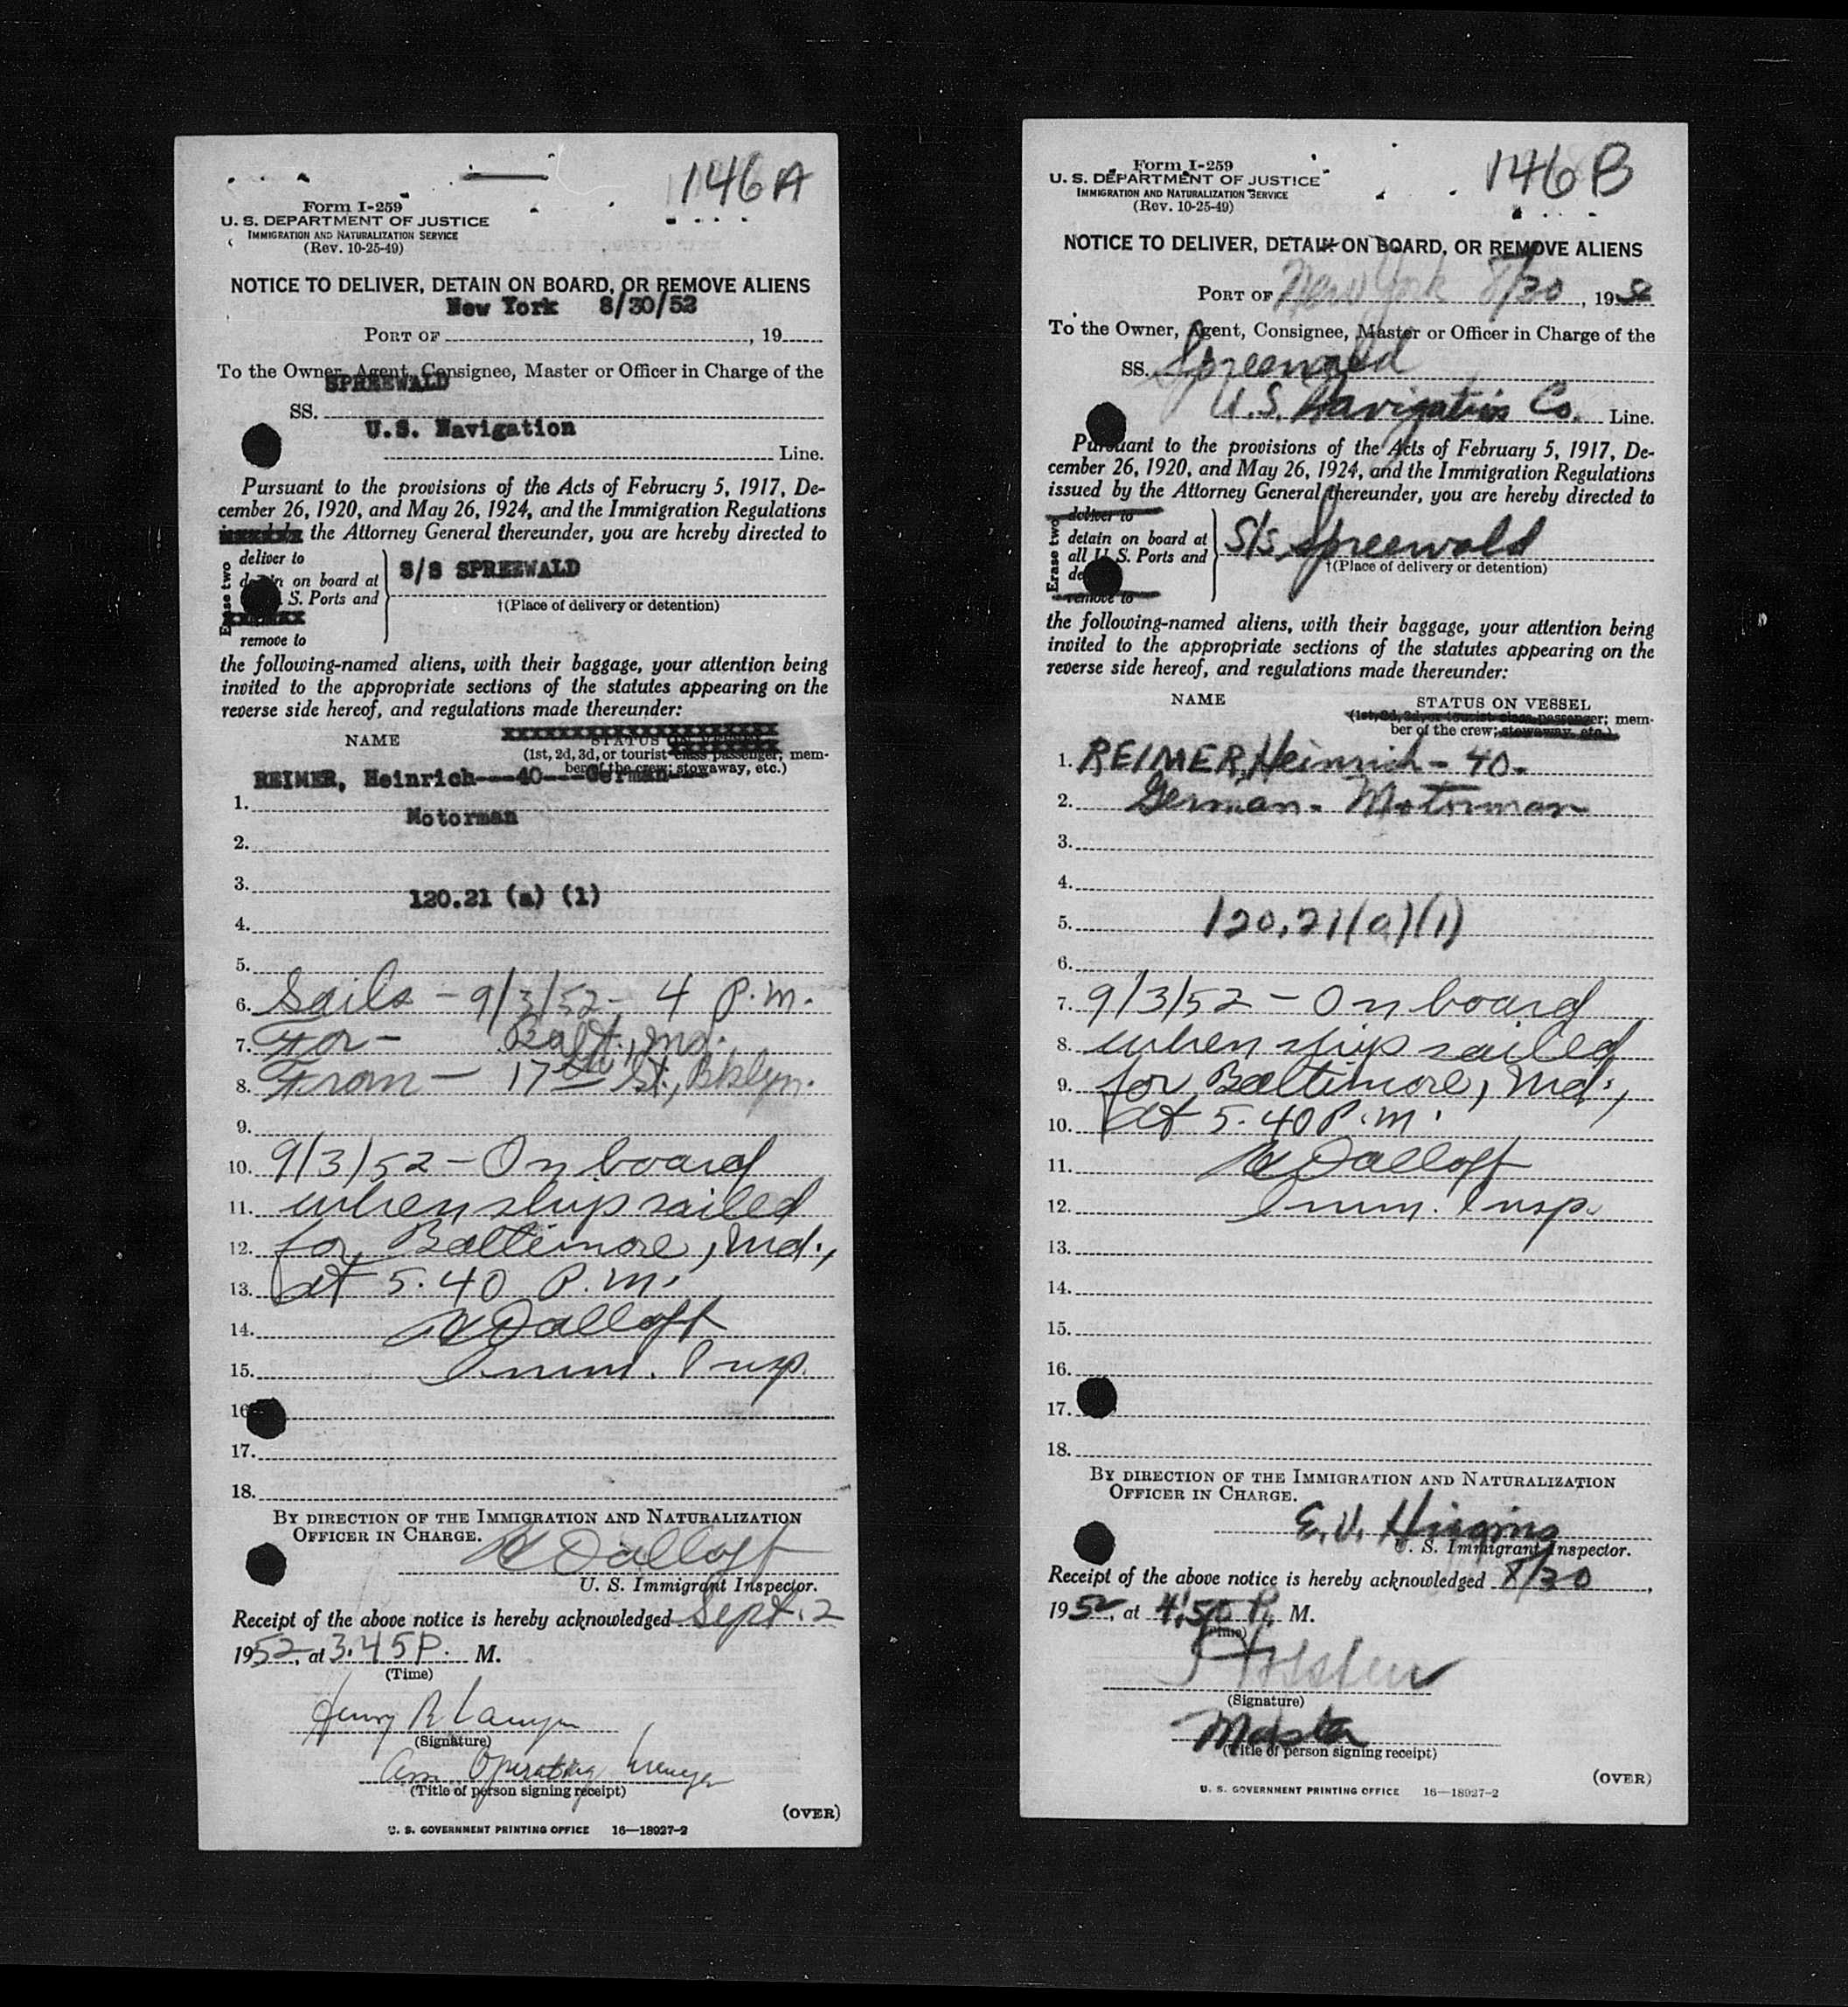 146A
Form I-259
U. S. DEPARTMENT OF JUSTICE
IMMIGRATION AND NATURALIZATION SERVICE
(Rev. 10-25-49)
NOTICE TO DELIVER, DETAIN ON BOARD, OR REMOVE ALIENS
New York 8/30/52
PORT OF , 19
To the Owner, Agent, Consignee, Master or Officer in Charge of the
SPREEWALD
SS.
U.S. Navigation
Line.
Pursuant to the provisions of the Acts of February 5, 1917, De-
cember 26, 1920, and May 26, 1924, and the Immigration Regulations
the Attorney General thereunder, you are hereby directed to
Erase two
deliver to
detain on board at
S. Ports and
remove to
S/S SPREEWALD
†(Place of delivery or detention)
the following-named aliens, with their baggage, your attention being
invited to the appropriate sections of the statutes appearing on the
reverse side hereof, and regulations made thereunder:
NAME STATUS ON VESSEL
(1st, 2d, 3d, or tourist class passenger; mem-
ber of the crew; stowaway, etc.)
REIMER, Heinrich---40---German
1.
Motorman
2.
3.
120.21 (a) (1)
4.
5.
6. Sails - 9/3/52 - 4 P.M.
7. For - Balt., Md.
8. From - 17th St., Bklyn.
9.
10. 9/3/52 - On board
11. when ship sailed
12. for Baltimore, Md.,
13. at 5.40 P.M.
14. Dalloff
15. Imm. Insp.
16
17.
18.
BY DIRECTION OF THE IMMIGRATION AND NATURALIZATION
OFFICER IN CHARGE.
Dalloff
U. S. Immigrant Inspector.
Receipt of the above notice is hereby acknowledged Sept. 2
1952, at 3.45 P. M.
(Time)
Henry R
(Signature)
Operating
(Title of person signing receipt)
(OVER)
U. S. GOVERNMENT PRINTING OFFICE 16—18927-2
146B
Form I-259
U. S. DEPARTMENT OF JUSTICE
IMMIGRATION AND NATURALIZATION SERVICE
(Rev. 10-25-49)
NOTICE TO DELIVER, DETAIN ON BOARD, OR REMOVE ALIENS
PORT OF New York 8/30, 1952
To the Owner, Agent, Consignee, Master or Officer in Charge of the
SS. Spreewald
U.S. Navigation Co. Line.
Pursuant to the provisions of the Acts of February 5, 1917, De-
cember 26, 1920, and May 26, 1924, and the Immigration Regulations
issued by the Attorney General thereunder, you are hereby directed to
Erase two
deliver to
detain on board at
all U. S. Ports and
de
remove to
S/s Spreewald
†(Place of delivery or detention)
the following-named aliens, with their baggage, your attention being
invited to the appropriate sections of the statutes appearing on the
reverse side hereof, and regulations made thereunder:
NAME STATUS ON VESSEL
(1st, 2d, 3d, or tourist class passenger; mem-
ber of the crew; stowaway, etc.)
1. REIMER, Heinrich - 40.
2. German. Motorman
3.
4.
5. 120.21(a)(1)
6.
7. 9/3/52 - On board
8. when ship sailed
9. for Baltimore, Md.,
10. at 5.40 P.M.
11. Dalloff
12. Imm. Insp.
13.
14.
15.
16.
17.
18.
BY DIRECTION OF THE IMMIGRATION AND NATURALIZATION
OFFICER IN CHARGE.
E.V. Higgins
U. S. Immigrant Inspector.
Receipt of the above notice is hereby acknowledged 8/30,
1952, at 4:50 P. M.
(Time)
(Signature)
Master
(Title of person signing receipt)
(OVER)
U. S. GOVERNMENT PRINTING OFFICE 16—18927-2